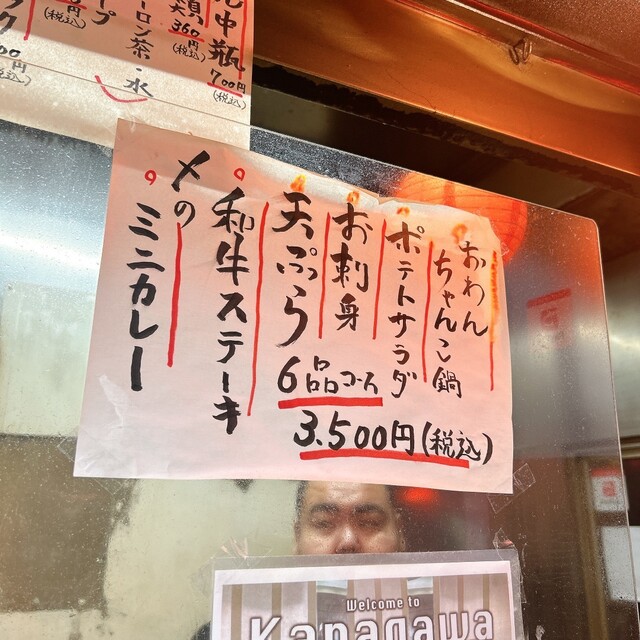 元中瓶
700円
(税込)
360円
(税込)
ーロン茶・水
おわん
ちゃんこ鍋
ポテトサラダ
お刺身
天ぷら
和牛ステーキ
〆の
ミニカレー
6品コース
3.500円(税込)
Welcome to
Kanagawa